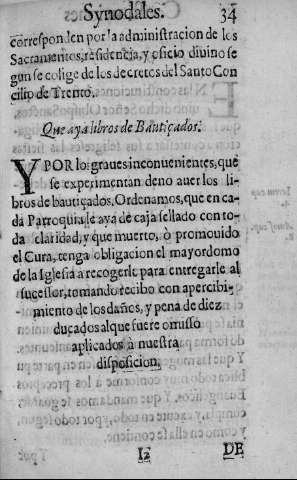 Synodales. 34
corresponden por la administracion de los
Sacramentos, residencia, y oficio divino se
gun se colige de los decretos del Santo Con
cilio de Trento.
Que aya libros de Bautiçados.
Y POR los graues inconuenientes, que
se experimentan deno auer los li-
bros de bautiçados, Ordenamos, que en ca
da Parroquia le aya de caja sellado con to-
da claridad, y que muerto, ò promovido
el Cura, tenga obligacion el mayordomo
de la Iglesia a recogerle para entregarle al
sucessor, tomando recibo con apercibi-
miento de los daños, y pena de diez
ducados al que fuere omisso
aplicados à nuestra
disposicion,
I2 DE